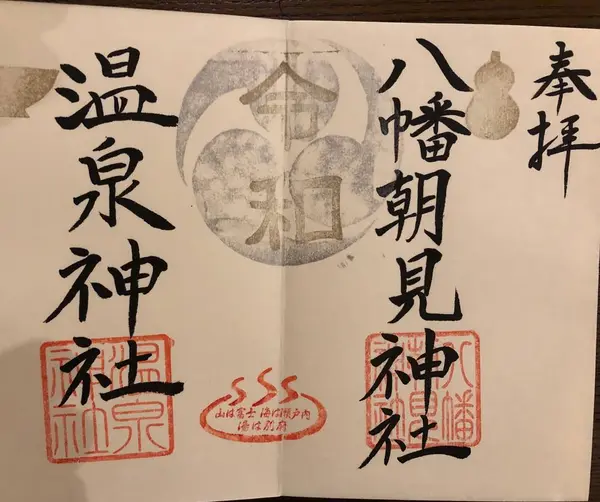 奉拝
八幡朝見神社
令和
温泉神社
八幡朝見神社
山は富士 海は瀬戸内
湯は別府
温泉神社